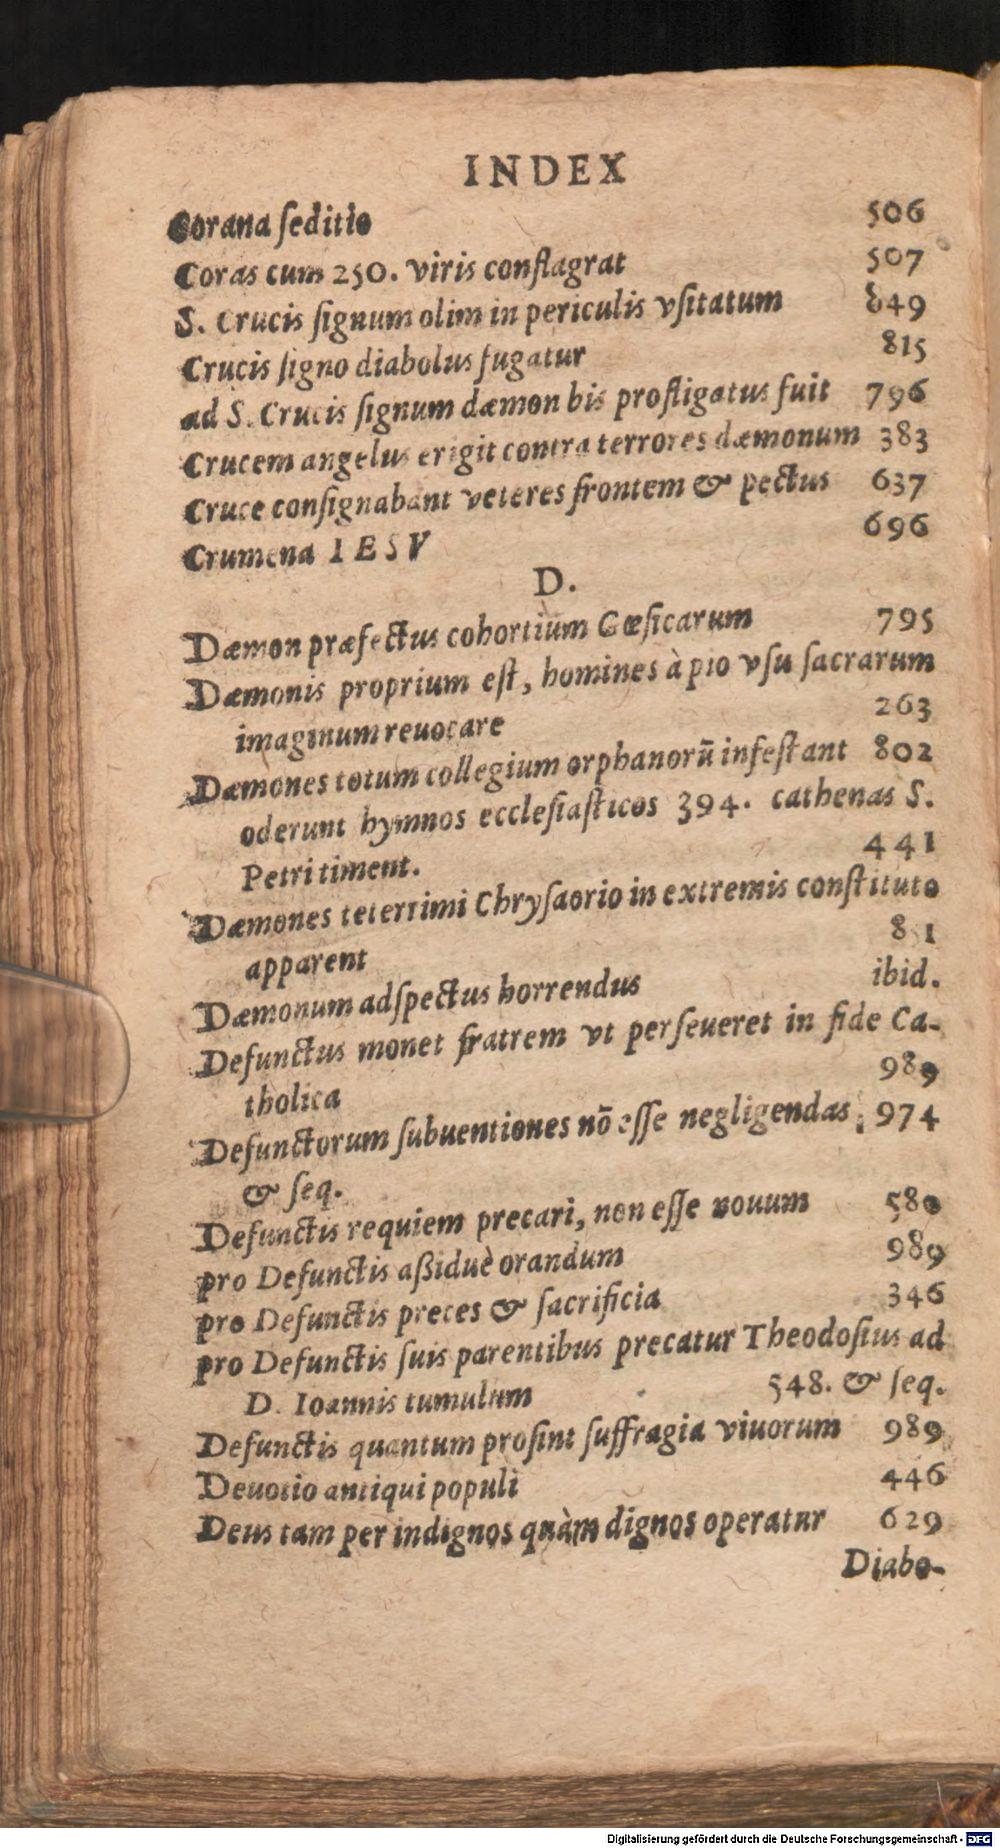 INDEX
Corana ſeditio 506
Coras cum 250. viris conflagrat 507
S. Crucis ſignum olim in periculis vſitatum 849
Crucis ſigno diabolus fugatur 815
ad S. Crucis ſignum dæmon bis profligatus fuit 796
Crucem angelus erigit contra terrores dæmonum 383
Cruce conſignabant veteres frontem & pectus 637
Crumena IESV 696
D.
Dæmon præfectus cohortium Gœſicarum 795
Dæmonis proprium eſt, homines à pio vſu ſacrarum
imaginum reuocare 263
Dæmones totum collegium orphanorū infeſtant 802
oderunt hymnos eccleſiaſticos 394. cathenas S.
Petri timent. 441
Dæmones teterrimi Chryſaorio in extremis conſtituto
apparent
Dæmonum adſpectus horrendus ibid.
Defunctus monet fratrem vt perſeueret in fide Ca-
tholica 989
Defunctorum ſubuentiones nō eſſe negligendas 974
& ſeq.
Defunctis requiem precari, non eſſe nouum 580
pro Defunctis aßiduè orandum 989
pro Defunctis preces & ſacrificia 346
pro Defunctis ſuis parentibus precatur Theodoſius ad
D. Ioannis tumulum 548. & ſeq.
Defunctis quantum proſint ſuffragia viuorum 989
Deuotio antiqui populi 446
Deus tam per indignos quàm dignos operatur 629
Diabo-
Digitalisierung gefördert durch die Deutsche Forschungsgemeinschaft - DFG